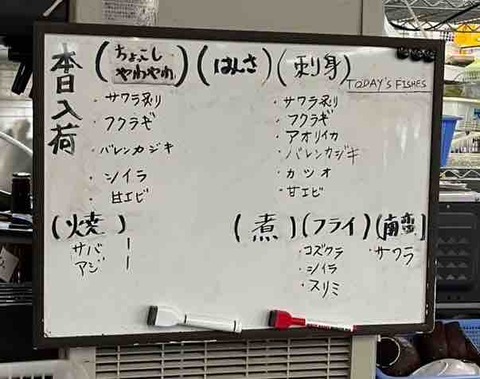 本日入荷
(ちょこし やわやわ)
・サワラ炙り
・フクラギ
・バレンカジキ
・シイラ
・甘エビ
(はんさ)
(刺身)
TODAY'S FISHES
・サワラ炙り
・フクラギ
・アオリイカ
・バレンカジキ
・カツオ
・甘エビ
(焼)
サバ ー
アジ ー
(煮)
(フライ)
・コズクラ
・シイラ
・スリミ
(南蛮)
・サワラ